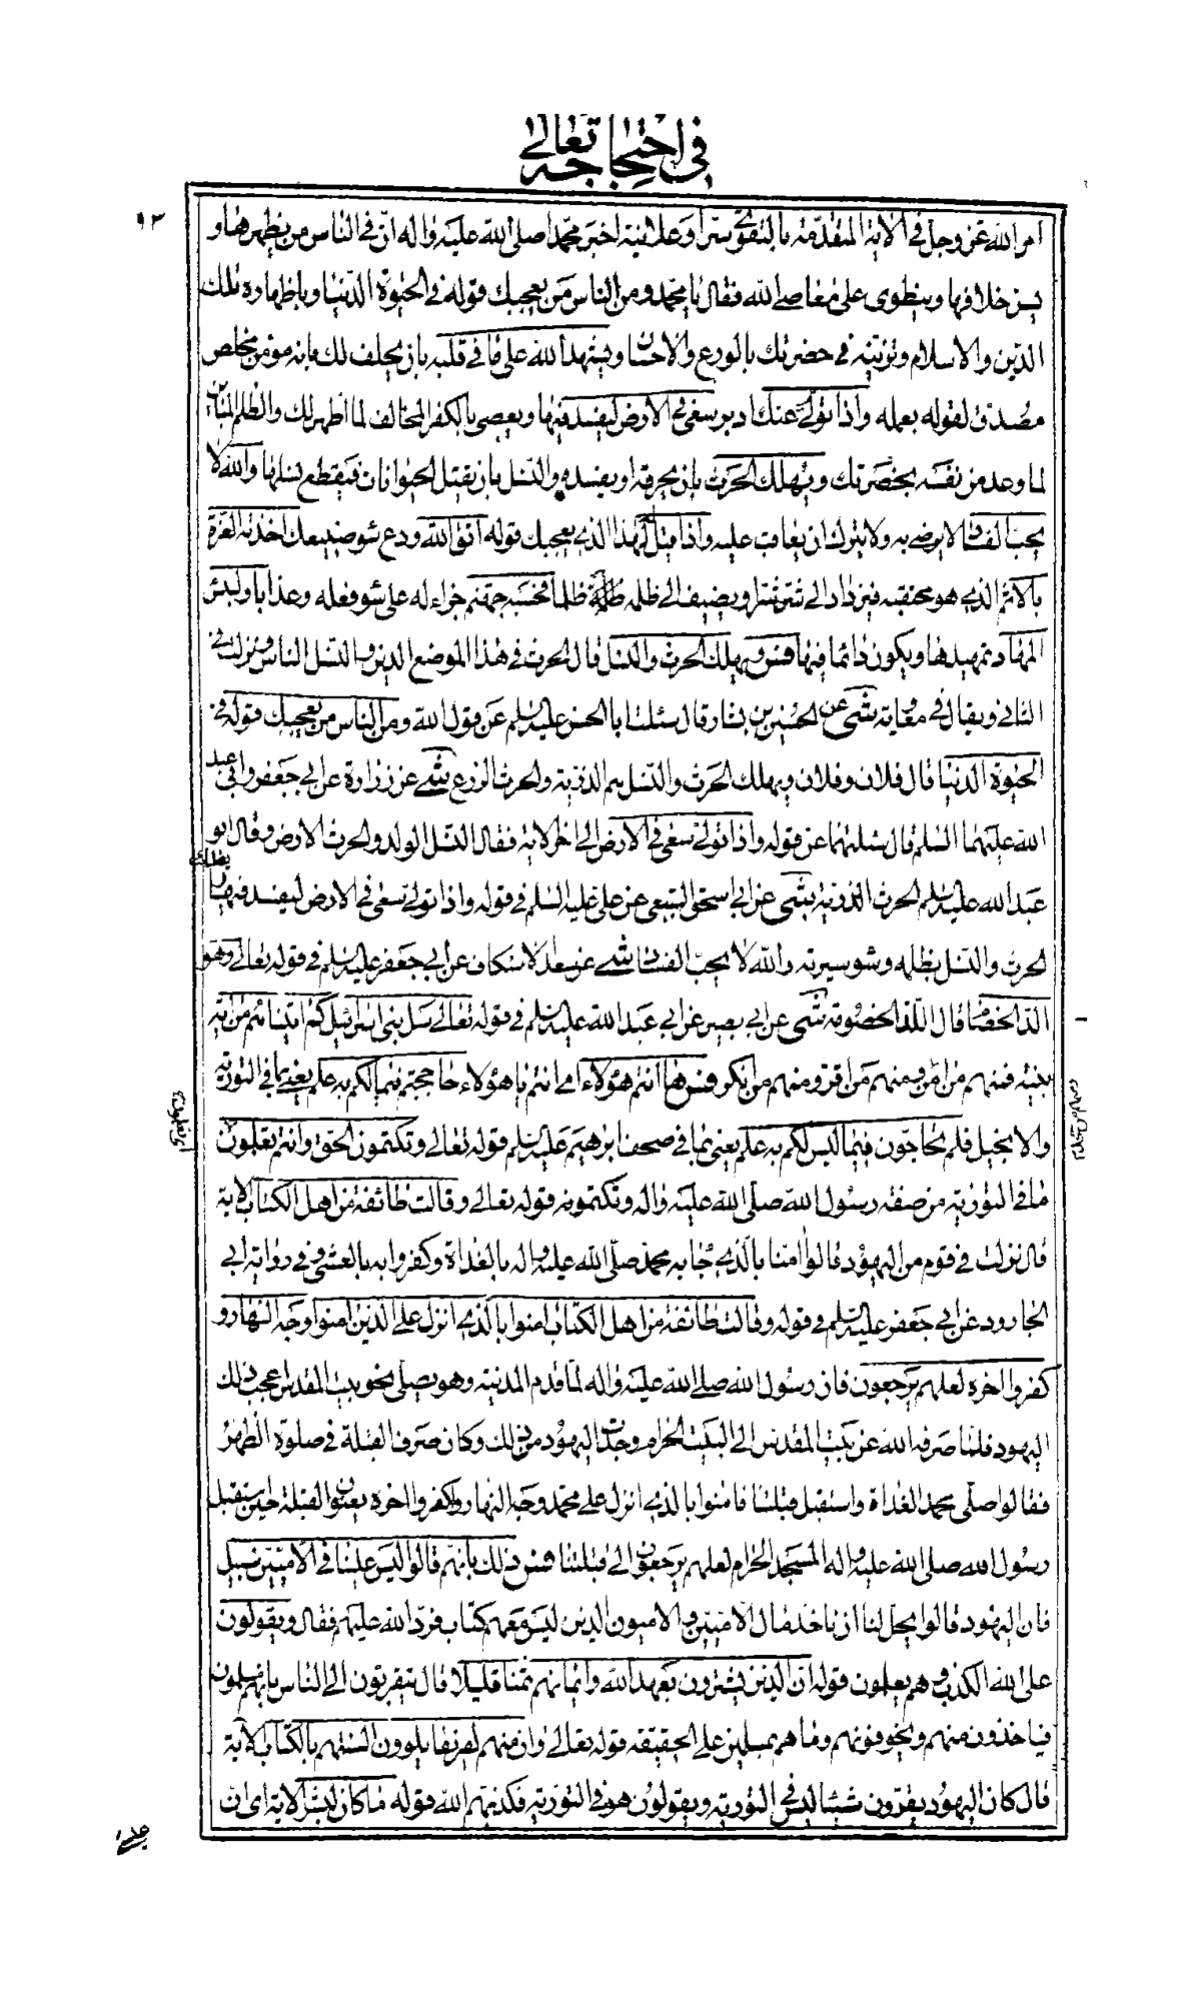 في احتجاجه تعالى
٩٢
امر الله عز وجل في الاية المقدمة بالتقوى سرا وعلانية اخبر محمدا صلى الله عليه واله ان في الناس من يظهرها و
يسر خلافها وينطوي على معاصي الله فقال يا محمد ومن الناس من يعجبك قوله في الحيوة الدنيا وباظهاره تلك
الدين والاسلام وتزينه في حضرتك بالورع والاحسان ويشهد الله على ما في قلبه بان يحلف لك بانه مؤمن مخلص
مصدق لقوله بعمله واذا تولى عنك ادبر سعى في الارض ليفسد فيها ويعصي بالكفر المخالف لما اظهر لك والظلم المباين
لما وعد من نفسه بحضرتك ويهلك الحرث بان يحرقه او يفسده والنسل بان يقتل الحيوانات فيقطع نسلها والله لا
يحب الفساد لا يرضى به ولا يترك ان يعاقب عليه واذا قيل لهذا الذي يعجبك قوله اتق الله ودع سوء صنيعك اخذته العزة
بالاثم الذي هو محتقبه فيزداد الى شره شرا ويضيف الى ظلمه ظلما فحسبه جهنم جزاء له على سوء فعله وعذابا ولبئس
المهاد تمهيدها ويكون دائما فيها فس ويهلك الحرث والنسل قال الحرث في هذا الموضع الدين والنسل الناس ونزلت في
الثاني ويقال في معاوية شى عن الحسين بن بشار قال سئلت ابا الحسن عليه السلم عن قول الله ومن الناس من يعجبك قوله في
الحيوة الدنيا قال فلان وفلان ويهلك الحرث والنسل هم الذرية والحرث الزرع شى عن زرارة عن ابي جعفر وابي عبد
الله عليهما السلم قال سئلتهما عن قوله واذا تولى سعى في الارض الى اخر الاية فقال النسل الولد والحرث الارض وقال ابو
عبد الله عليه السلم الحرث الذرية شى عن ابي اسحق السبيعي عن علي عليه السلم في قوله واذا تولى سعى في الارض ليفسد فيها ويهلك
الحرث والنسل بظلمه وسوء سيرته والله لا يحب الفساد شى عن سعد الاسكاف عن ابي جعفر عليه السلم في قوله تعالى وهو
الد الخصام قال اللد الخصومة شى عن ابي بصير عن ابي عبد الله عليه السلم في قوله تعالى سل بني اسرائيل كم اتيناهم من اية
بينة فمنهم من امن ومنهم من اقر ومنهم من انكر فس ها انتم هؤلاء اي انتم يا هؤلاء حاججتم فيما لكم به علم يعني بما في التورية
والانجيل فلم تحاجون فيما ليس لكم به علم يعني بما في صحف ابرهيم عليه السلم قوله تعالى وتكتمون الحق وانتم تعلمون
ما في التورية من صفة رسول الله صلى الله عليه واله وتكتمونه قوله تعالى وقالت طائفة من اهل الكتاب الاية
قال نزلت في قوم من اليهود قالوا امنا بالذي جاء به محمد صلى الله عليه واله بالغداة وكفروا به بالعشي وفي رواية ابي
الجارود عن ابي جعفر عليه السلم في قوله وقالت طائفة من اهل الكتاب امنوا بالذي انزل على الذين امنوا وجه النهار و
كفروا اخره لعلهم يرجعون فان رسول الله صلى الله عليه واله لما قدم المدينة وهو يصلي نحو بيت المقدس اعجب ذلك
اليهود فلما صرفه الله عن بيت المقدس الى البيت الحرام وجدت اليهود من ذلك وكان صرف القبلة في صلوة الظهر
فقالوا صلى محمد الغداة واستقبل قبلتنا فامنوا بالذي انزل على محمد وجه النهار واكفروا اخره يعنون القبلة حين استقبل
رسول الله صلى الله عليه واله المسجد الحرام لعلهم يرجعون الى قبلتنا فس ذلك بانهم قالوا ليس علينا في الاميين سبيل
فان اليهود قالوا يحل لنا ان ناخذ مال الاميين والاميون الذين ليس معهم كتاب فرد الله عليهم فقال ويقولون
على الله الكذب وهم يعلمون قوله ان الذين يشترون بعهد الله وايمانهم ثمنا قليلا قال يتقربون الى الناس بانهم مسلمون
فياخذون منهم ويخونونهم وما هم بمسلمين على الحقيقة قوله تعالى وان منهم لفريقا يلوون السنتهم بالكتاب الاية
قال كان اليهود يقرون شيئا ليس في التورية ويقولون هو في التورية فكذبهم الله قوله ما كان لبشر الاية اي ان